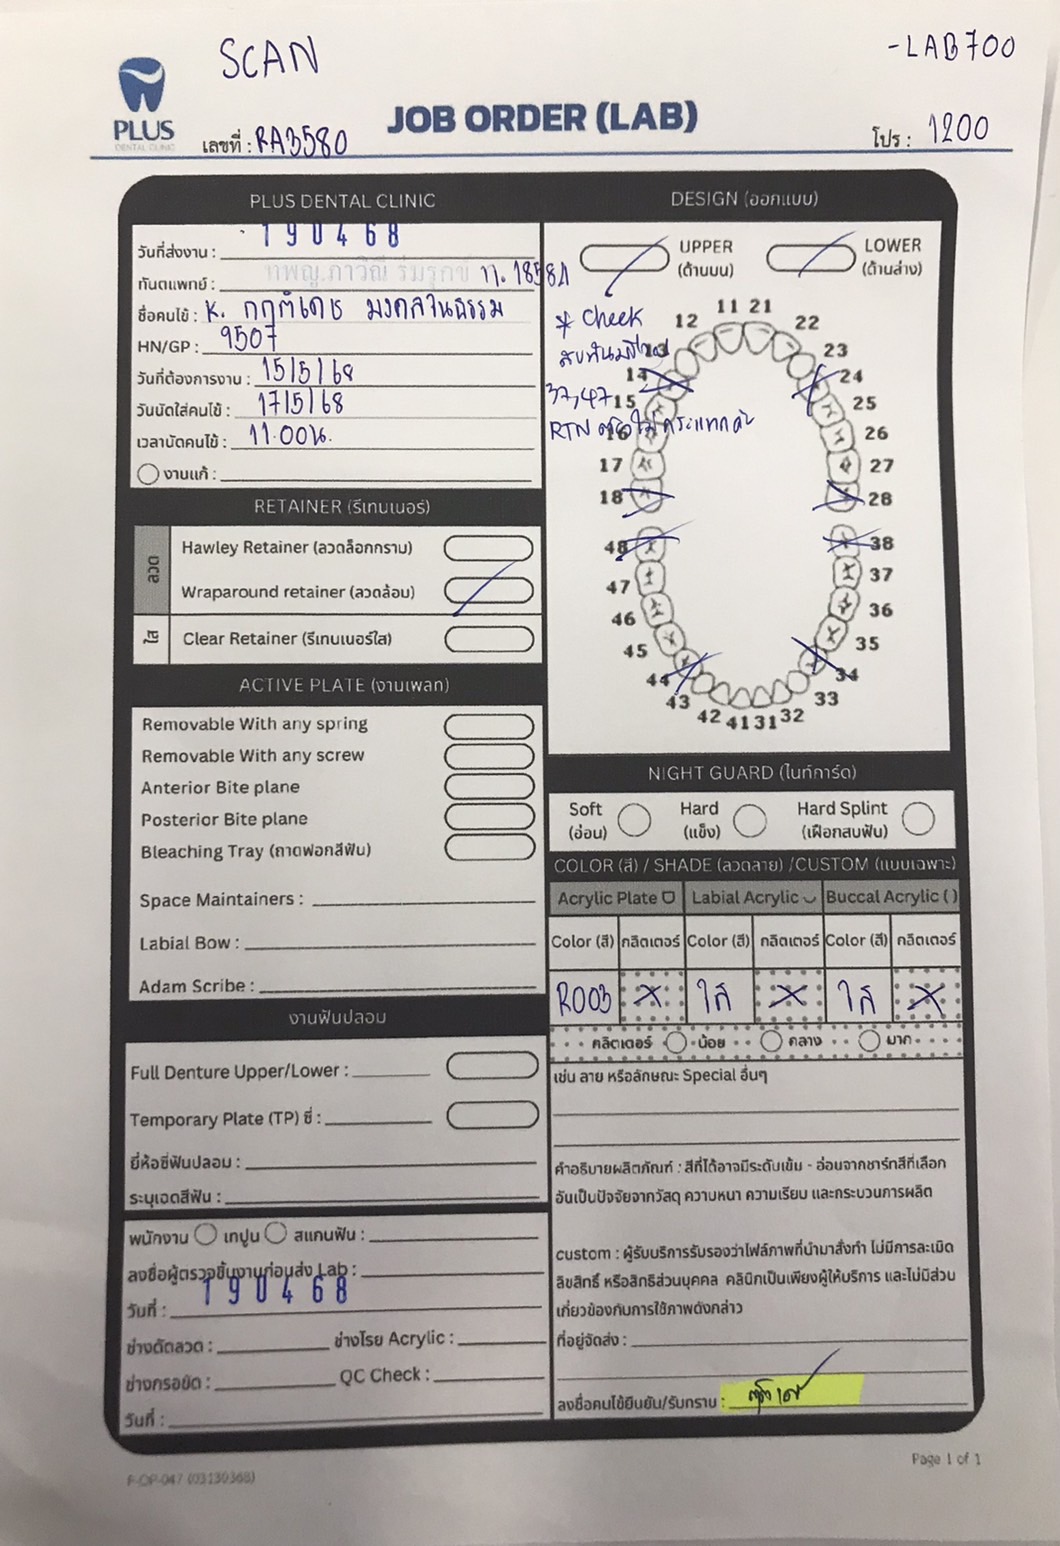 SCAN
-LAB 700
PLUS
DENTAL CLINIC
เลขที่ : RA3580
JOB ORDER (LAB)
โปร : 1200
PLUS DENTAL CLINIC
วันที่ส่งงาน : 190468
ทันตแพทย์ : ทพญ.ภาวิณี ท. 18584
ชื่อคนไข้ : K. กฤติเดช มงคลวันธรรม
HN/GP : 9507
วันที่ต้องการงาน : 15/5/68
วันนัดใส่คนไข้ : 17/5/68
เวลานัดคนไข้ : 11.00น.
งานแก้ :
RETAINER (รีเทนเนอร์)
ลวด
Hawley Retainer (ลวดล็อกกราม)
Wraparound retainer (ลวดล้อม)
ใส
Clear Retainer (รีเทนเนอร์ใส)
ACTIVE PLATE (งานเพลท)
Removable With any spring
Removable With any screw
Anterior Bite plane
Posterior Bite plane
Bleaching Tray (ถาดฟอกสีฟัน)
Space Maintainers :
Labial Bow :
Adam Scribe :
งานฟันปลอม
Full Denture Upper/Lower :
Temporary Plate (TP) ซี่ :
ยี่ห้อซี่ฟันปลอม :
ระบุเฉดสีฟัน :
พนักงาน เทปูน สแกนฟัน :
ลงชื่อผู้ตรวจชิ้นงานก่อนส่ง Lab :
วันที่ : 190468
ช่างดัดลวด : ช่างโรย Acrylic :
ช่างกรอขัด : QC Check :
วันที่ :
DESIGN (ออกแบบ)
UPPER (ด้านบน)
LOWER (ด้านล่าง)
* Check
37,47
RTN
11 21
12 22
13 23
14 24
15 25
16 26
17 27
18 28
48 38
47 37
46 36
45 35
44 34
43 33
42 41 31 32
NIGHT GUARD (ไนท์การ์ด)
Soft (อ่อน)
Hard (แข็ง)
Hard Splint (เฝือกสบฟัน)
COLOR (สี) / SHADE (ลวดลาย) /CUSTOM (แบบเฉพาะ)
Acrylic Plate Labial Acrylic Buccal Acrylic ( )
Color (สี) กลิตเตอร์ Color (สี) กลิตเตอร์ Color (สี) กลิตเตอร์
R003 X ใส X ใส X
กลิตเตอร์ น้อย กลาง มาก
เช่น ลาย หรือลักษณะ Special อื่นๆ
คำอธิบายผลิตภัณฑ์ : สีที่ได้อาจมีระดับเข้ม - อ่อนจากชาร์ทสีที่เลือก
อันเป็นปัจจัยจากวัสดุ ความหนา ความเรียบ และกระบวนการผลิต
custom : ผู้รับบริการรับรองว่าไฟล์ภาพที่นำมาสั่งทำ ไม่มีการละเมิด
ลิขสิทธิ์ หรือสิทธิส่วนบุคคล คลินิกเป็นเพียงผู้ให้บริการ และไม่มีส่วน
เกี่ยวข้องกับการใช้ภาพดังกล่าว
ที่อยู่จัดส่ง :
ลงชื่อคนไข้ยืนยัน/รับทราบ :
Page 1 of 1
F-OP-047 (03130368)